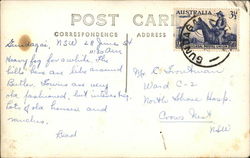 POST CARD
CORRESPONDENCE
ADDRESS
AUSTRALIA
3½
GUNDAGAI
Gundagai, NSW 28 June 54
Heavy fog for a while. The
hills here are hills around
Butler. Towns are very
old fashioned, but interesting.
Lot of old houses and
ranches.
Dad
Mr. D. Troutman
Ward C-2
North Shore Hosp.
Crows Nest
NSW